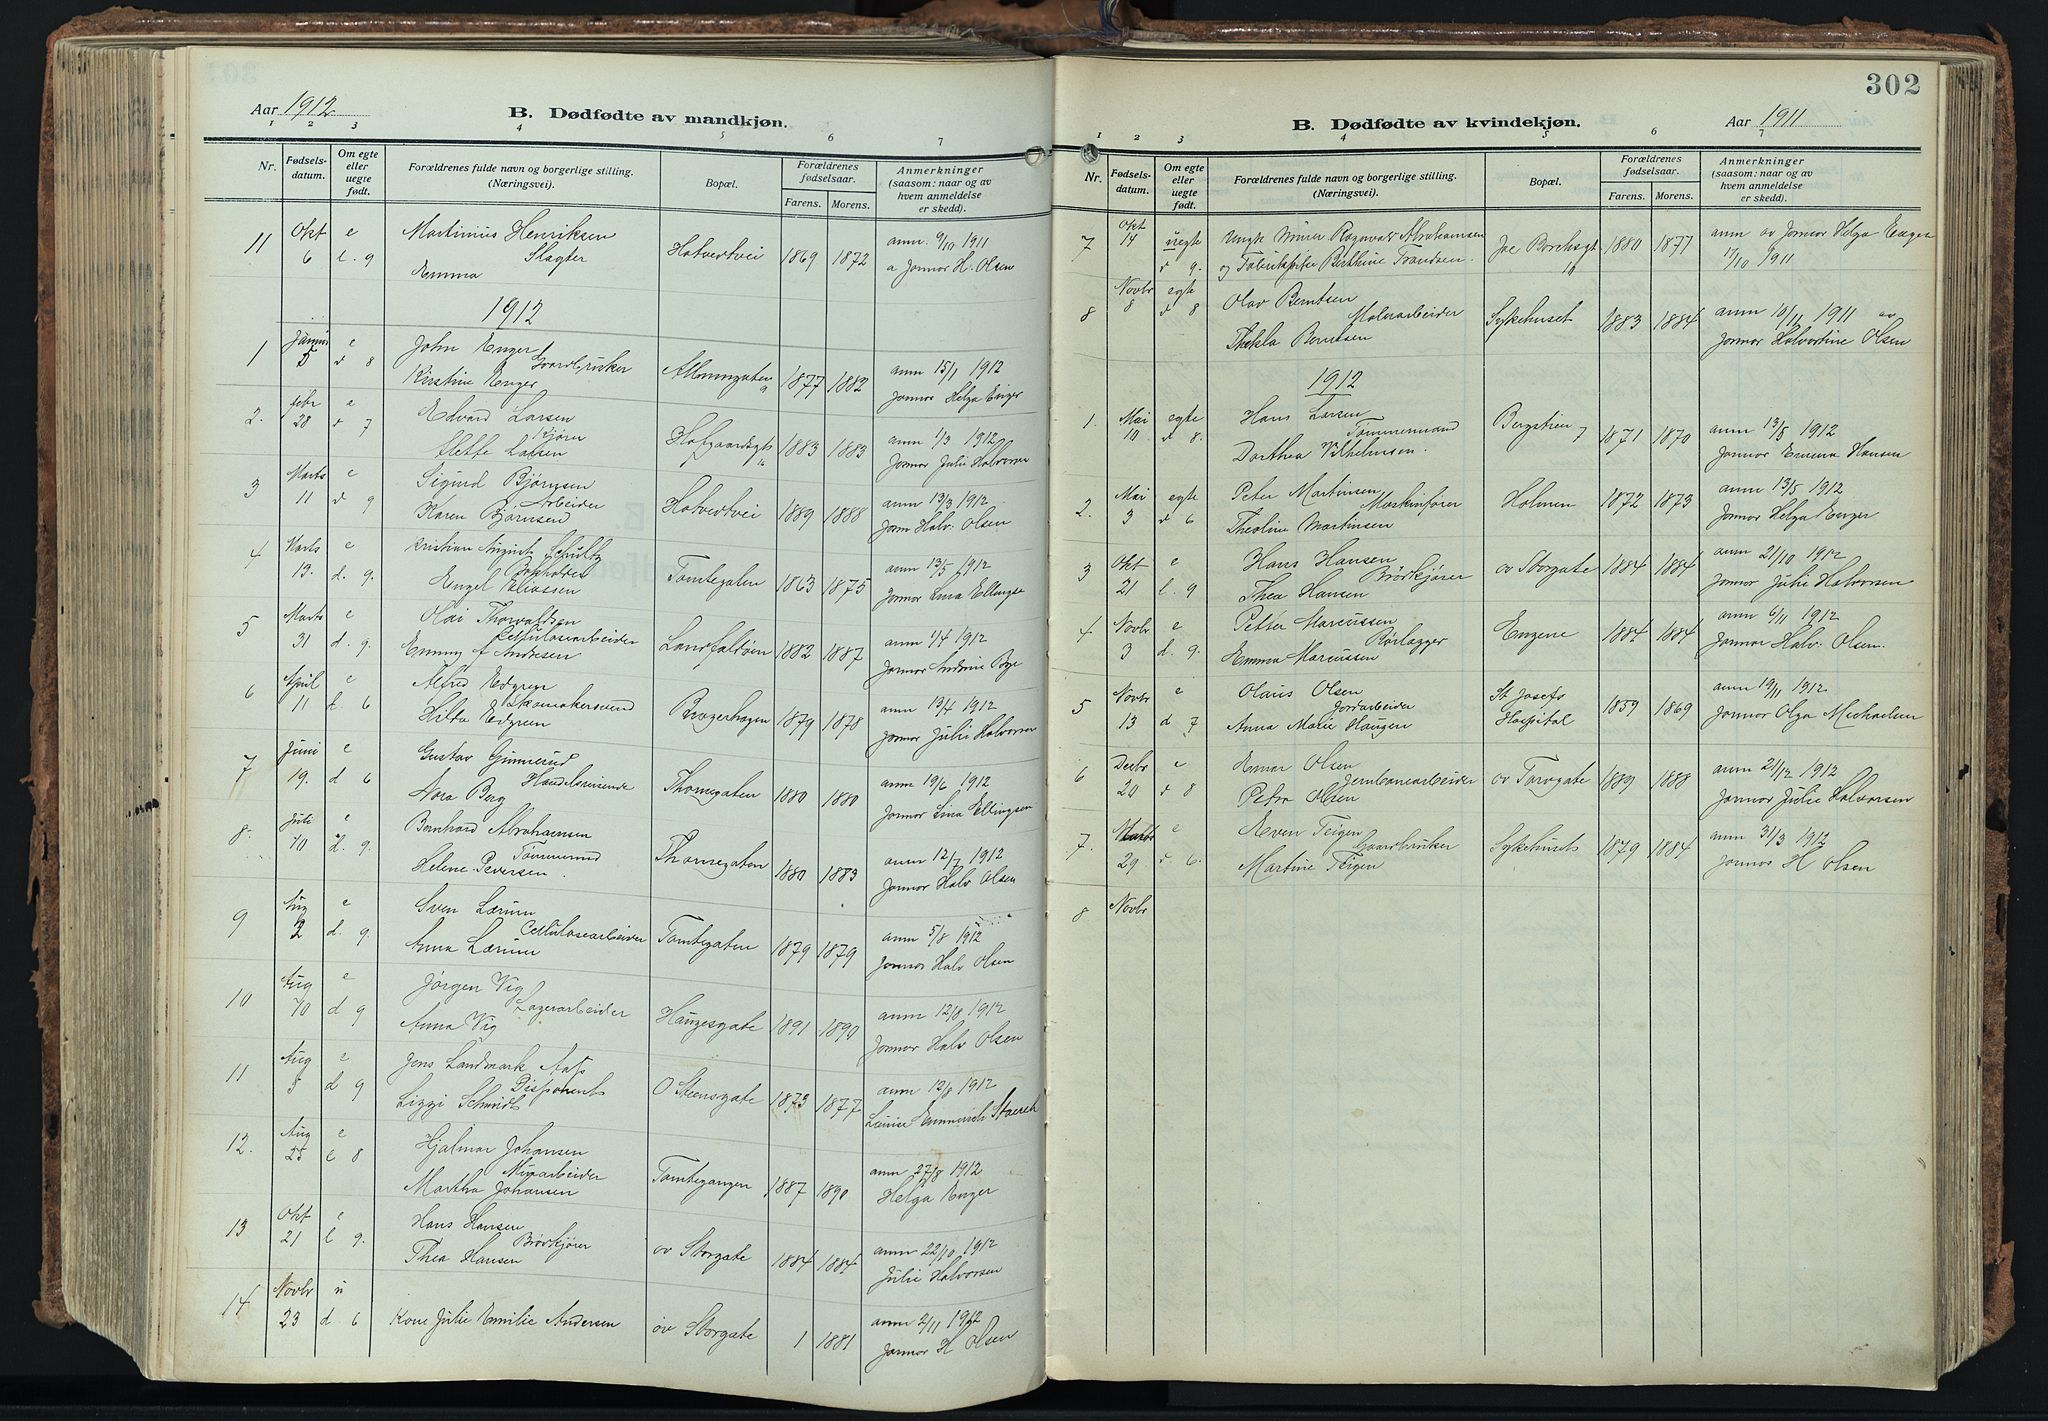 Aar 1912
B. Dødfødte av mandkjøn.
1 2 3 4 5 6 7
Nr. Fødsels-datum. Om egte eller uegte født. Forældrenes fulde navn og borgerlige stilling. (Næringsvei). Bopæl. Forældrenes fødselsaar. Farens. Morens. Anmerkninger (saasom: naar og av hvem anmeldelse er skedd).
11 Okt e Martinius Henriksen anm. 9/10 1911
6 l. 9 Slagter Hotvedtvei 1869 1872 a Jormor H. Olsen
Emma
1912
1 e John Enger anm 15/1 1912
5 d 8 Gaardbruker 1877 1882
Kirstine Enger Jormor Helga Enger
2. Febr e Edvard Larsen anm 1/3 1912
28 d 7 Kjører 1883 1883
Larsen Jormor Julie Halvorsen
3 Marts e Sigurd Bjørnsen anm 13/3 1912
11 d 9 Arbeider Hotvedtvei 1889 1888
Karen Bjørnsen Jorm Halv. Olsen
4 Marts e Kristian August Schultz anm 13/5 1912
13. d. 9. Tomtegaten 1863 1875
Engel Eliassen Jormor Lina Ellingsen
5 Marts e Olai Thorvaldsen anm 1/4 1912
31 d. 9. Cellulosearbeider Landfaldøen 1882 1887
Emmy f Andresen Jormor Andrine Bye
6 April e Alfred Edgren anm 13/4 1912
11 6 Skomakersvend Bragerhagen 1879 1878
Hilda Edgren Jormor Julie Halvorsen
7 Juni e Gustav Gunnerud anm 19/6 1912
19. d 6 Handelsreisende Thomegaten 1880 1880
Nora Berg Jormor Lina Ellingsen
8. Juli e Bernhard Abrahamsen anm 12/7 1912
10 d. 9. Tømmermand Thomegaten 1880 1883
Helene Peversen. Jormor Halv Olsen
9 Aug e Sven Lærum anm 5/8 1912
2 d. 9. Cellulosearbeider Tomtegaten 1879 1879
Anna Lærum Jormor Halv Olsen
10 Aug e Jørgen Vig anm 12/8 1912
10 d 9 Lagerarbeider Haugesgate 1891 1890
Anna Vig Jormor Halv Olsen
11 Aug e Jens Landmark anm 12/8 1912
5 d 9 Disponent O Steensgate 1873 1877
Lizzi Schmidt
12. Aug e Hjalmar Johansen anm 27/8 1912
25 l 8 Murarbeider Tomtegangen 1887 1890
Martha Johansen Helga Enger
13 Okt e Hans Hansen anm 22/10 1912
21 l 9. Brødkjører øv Storgate 1884 1884
Thea Hansen Julie Halvorsen
14 Novbr u anm 2/11 1912
23 d 6 Kone Julie Emilie Andersen øv Storgate 1 1881
Jormor H Olsen
302
B. Dødfødte av kvindekjøn.
Aar 1911
1 2 3 4 5 6 7
Nr. Fødsels-datum. Om egte eller uegte født. Forældrenes fulde navn og borgerlige stilling. (Næringsvei). Bopæl. Forældrenes fødselsaar. Farens. Morens. Anmerkninger (saasom: naar og av hvem anmeldelse er skedd).
7 Okt uegte Ungk Ragnvald Abrahamsen anm av Jormor Helga Enger
14 d 9. og Berthine Svendsen. 10 1880 1877 17/10 1911
8 Novbr egte Olav Berntsen anm 16/11 1911 av
8 d 8 Malerarbeider Sykehuset 1883 1884
Thekla Berntsen Jormor Halvordine Olsen
1912
1. Mai egte Hans Larsen anm 13/5 1912
10 d 8. Tømmermand Bergstien 7 1871 1870
Dorthea Vilhelmsen. Jormor Emma Hansen
2. Mai egte Peter Martinsen anm 13/5 1912
3 d 6 Maskinfører Holmen 1872 1873
Theoline Martinsen Jormor Helga Enger
3 Okt e Hans Hansen anm 21/10 1912
21 l. 9 Brødkjører øv Storgate 1884 1884
Thea Hansen Jormor Julie Halvorsen
4 Novbr e Petter Marcussen anm 6/11 1912
3 d. 9. Rørlægger Engene 1884 1884
Emma Marcussen Jormor Halv. Olsen.
5 Novbr e Olaus Olsen St Josefs anm 19/11 1912
13 d 7 Jordarbeider Hospital 1859 1869
Anna Marie Haugen Jormor Olga Michaelsen
6 Decbr e Einar Olsen anm 21/12 1912
20 d 8 Jernbanearbeider øv Torvgate 1889 1888
Petra Olsen Jormor Julie Halvorsen
7. e Even Teigen anm 31/3 1912
29 d 6. Gaardbruker Sykehuset 1879 1884
Martine Teigen Jormor H Olsen
8 Novbr